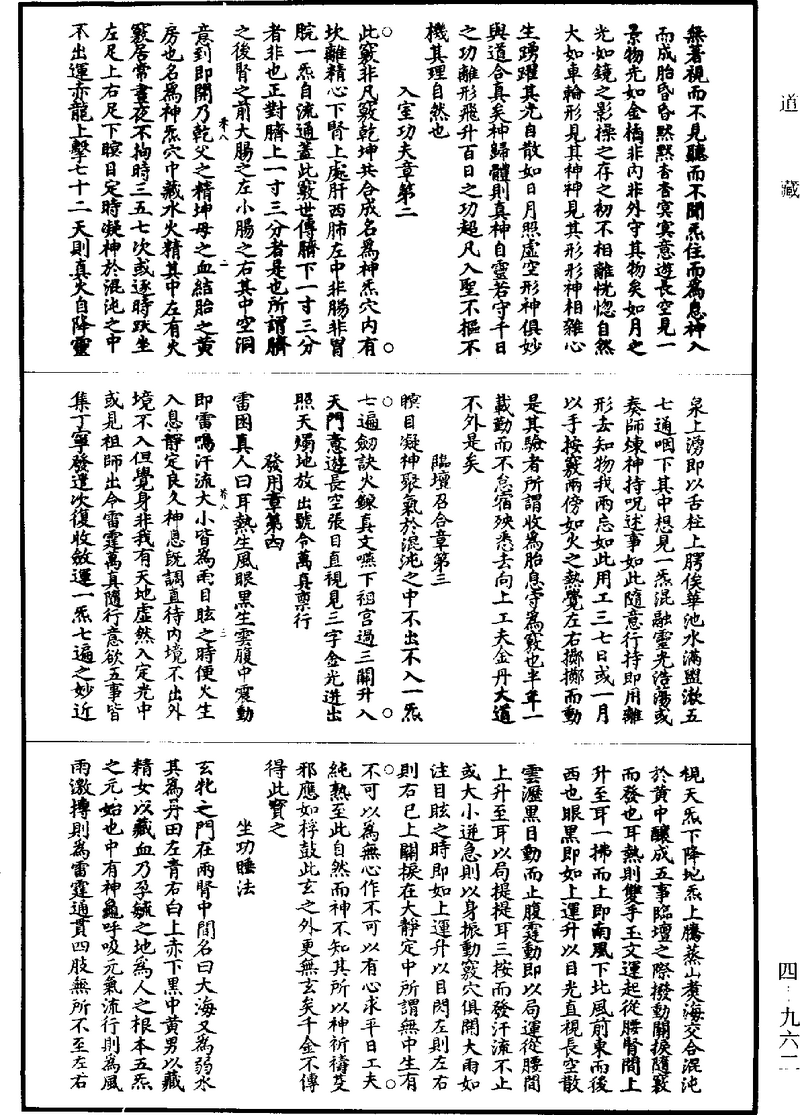 道藏
無著視而不見聽而不聞炁住而為息神入
而成胎昏昏默默杳杳冥冥意遊長空見一
景物先如金橋非內非外守其物矣如月之
光如鏡之影操之存之初不相離恍惚自然
大如車輪形見其神神見其形形神相雜心
生踴躍其光自散如日月照虛空形神俱妙
與道合真矣神歸體則真神自靈若守千日
之功離形飛升百日之功超凡入聖不樞不
機其理自然也
入室功夫章第二
此竅非凡竅乾坤共合成名為神炁穴內有
坎離精心下腎上處肝西肺左中非腸非胃
脘一炁自流通蓋此竅世傳臍下一寸三分
者非也正對臍上一寸三分者是也所謂臍
之後腎之前大腸之左小腸之右其中空洞
意到即開乃乾父之精坤母之血結胎之黃
房也名為神炁穴中藏水火精其中左有火
竅居常晝夜不拘時三五七次或逐時趺坐
左足上右足下瞑目定時凝神於混沌之中
不出運赤龍上擊七十二天則真火自降靈
泉上湧即以舌柱上腭俟華池水滿盥漱五
七通咽下其中想見一炁混融靈光浩蕩或
奏師煉神持呪述事如此隨意行持即用離
形去知物我兩忘如此用工三七日或一月
以手按竅兩傍如火之熱覺左右擲擲而動
是其驗者所謂收為胎息守為竅也半年一
載勤而不怠宿殃悉去向上工夫金丹大道
不外是矣
臨壇召合章第三
瞑目凝神聚氣於混沌之中不出不入一炁
七遍劒訣火鍊真文嚥下祖宮過三關升入
天門意遊長空張目直視見三字金光迸出
照天燭地放出號令萬真稟行
發用章第四
雷困真人曰耳熱生風眼黑生雲腹中震動
即雷鳴汗流大小皆為雨目眩之時便火生
入息靜定良久神息既調直待內境不出外
境不入但覺身非我有天地虛然入定光中
或見祖師出令雷霆萬真隨行意欲五事皆
集丁寧發運次復收斂運一炁七遍之妙近
視天炁下降地炁上騰蒸山煑海交合混沌
於黃中釀成五事臨壇之際撥動關捩隨竅
而發也耳熱則雙手玉文運起從腰腎間上
升至耳一拂而上即南風下北風前東而後
西也眼黑即如上運升以目光直視長空散
雲瀝黑目動而止腹霆動即以局運從腰間
上升至耳以局提提耳三按而發汗流不止
或大小逆急則以身振動竅穴俱開大雨如
注目眩之時即如上運升以目閃左則左右
則右已上關捩在大靜定中所謂無中生有
不可以為無心作不可以有心求平日工夫
純熟至此自然而神不知其所以神祈禱芟
邪應如桴鼓此玄之外更無玄矣千金不傳
得此寶之
坐功睡法
玄牝之門在兩腎中間名曰大海又為弱水
其為丹田左青右白上赤下黑中黃男以藏
精女以藏血乃孕毓之地為人之根本五炁
之元始也中有神龜呼吸元氣流行則為風
雨激摶則為雷霆通貫四肢無所不至左右
四·九六二